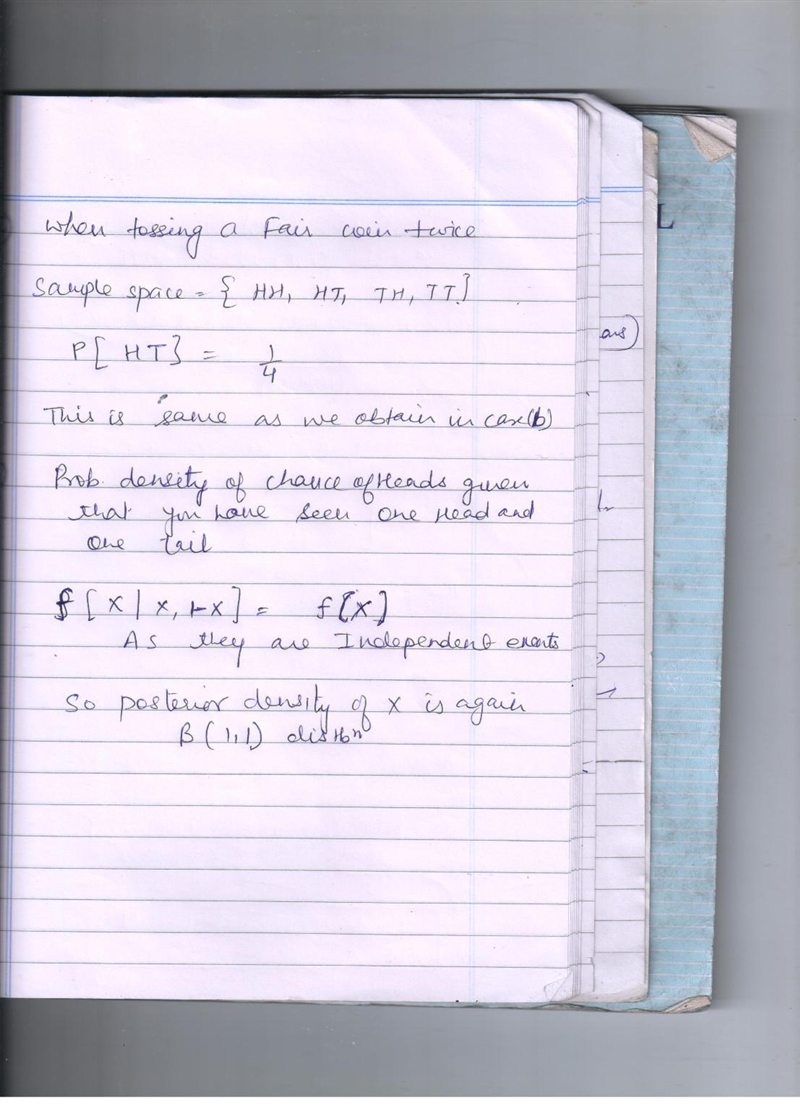 When tossing a Fair coin twice
Sample space = { HH, HT, TH, TT }
P[ HT} = 1/4
This is same as we obtain in case(b)
Prob. density of chance of Heads given
that you have seen one Head and
one tail
f[ X | x, 1-x] = f[X]
As they are Independent events
So posterior density of X is again
B(1,1) distbn
L
ans)